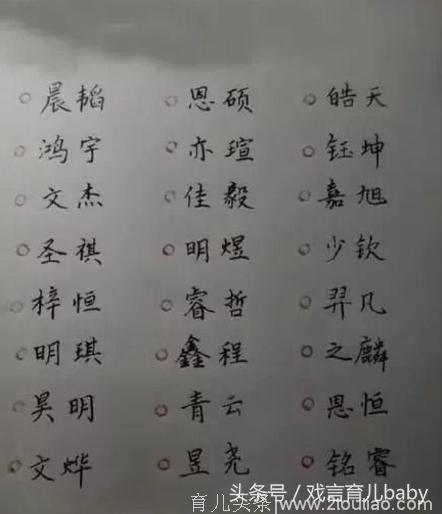 晨韬 恩硕 皓天
鸿宇 亦瑄 钰坤
文杰 佳毅 嘉旭
圣祺 明煜 少钦
梓恒 睿哲 羿凡
明琪 鑫程 之麟
昊明 青云 恩恒
文烨 昱尧 铭睿
头条号 / 戏言育儿baby
育儿头条 www.2toutiao.com